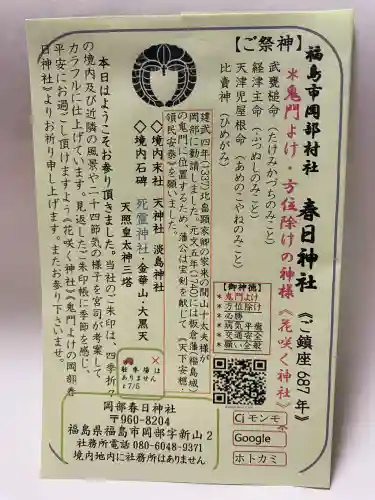 福島市岡部村社 春日神社 《ご鎮座687年》
＊鬼門よけ・方位除けの神様《花咲く神社》
【ご祭神】
武甕槌命（たけみかづちのみこと）
経津主命（ふつぬしのみこと）
天津児屋根命（あめのこやねのみこと）
比賣神（ひめがみ）
【御神徳】
＊鬼門よけ
＊方位除け
＊必勝
＊病気平癒
＊交通安全
＊願い全般
建武四年(1337)北畠顕家卿の家来の間山十太夫様が
岡部に勧請しました。元文五年(1740)には板倉藩(福島城)
の鬼門に位置するため、藩公は宝剣を献じて《天下安穏
領民安泰》を願いました。
◇境内末社 天神社 淡島神社
死霊神社
◇境内石碑 金華山・大黒天
天照皇太神三塔
本日はようこそお参り頂きました。当社のご朱印は、四季折々
の境内及び近隣の風景や二十四節気の様子を宮司が考案して
カラフルに仕上げています。見返したご朱印帳に季節を感じ、
平安にお過ごし頂けますよう《花咲く神社》《鬼門よけの岡部春
日神社》よりお祈り申し上げます。またお参り下さいませ。
駐車場は
ありません
r7/6
岡部春日神社
〒960-8204
福島県福島市岡部字新山2
社務所電話 080-6048-9371
境内地内に社務所はありません
Cjモンモ
Google
ホトカミ